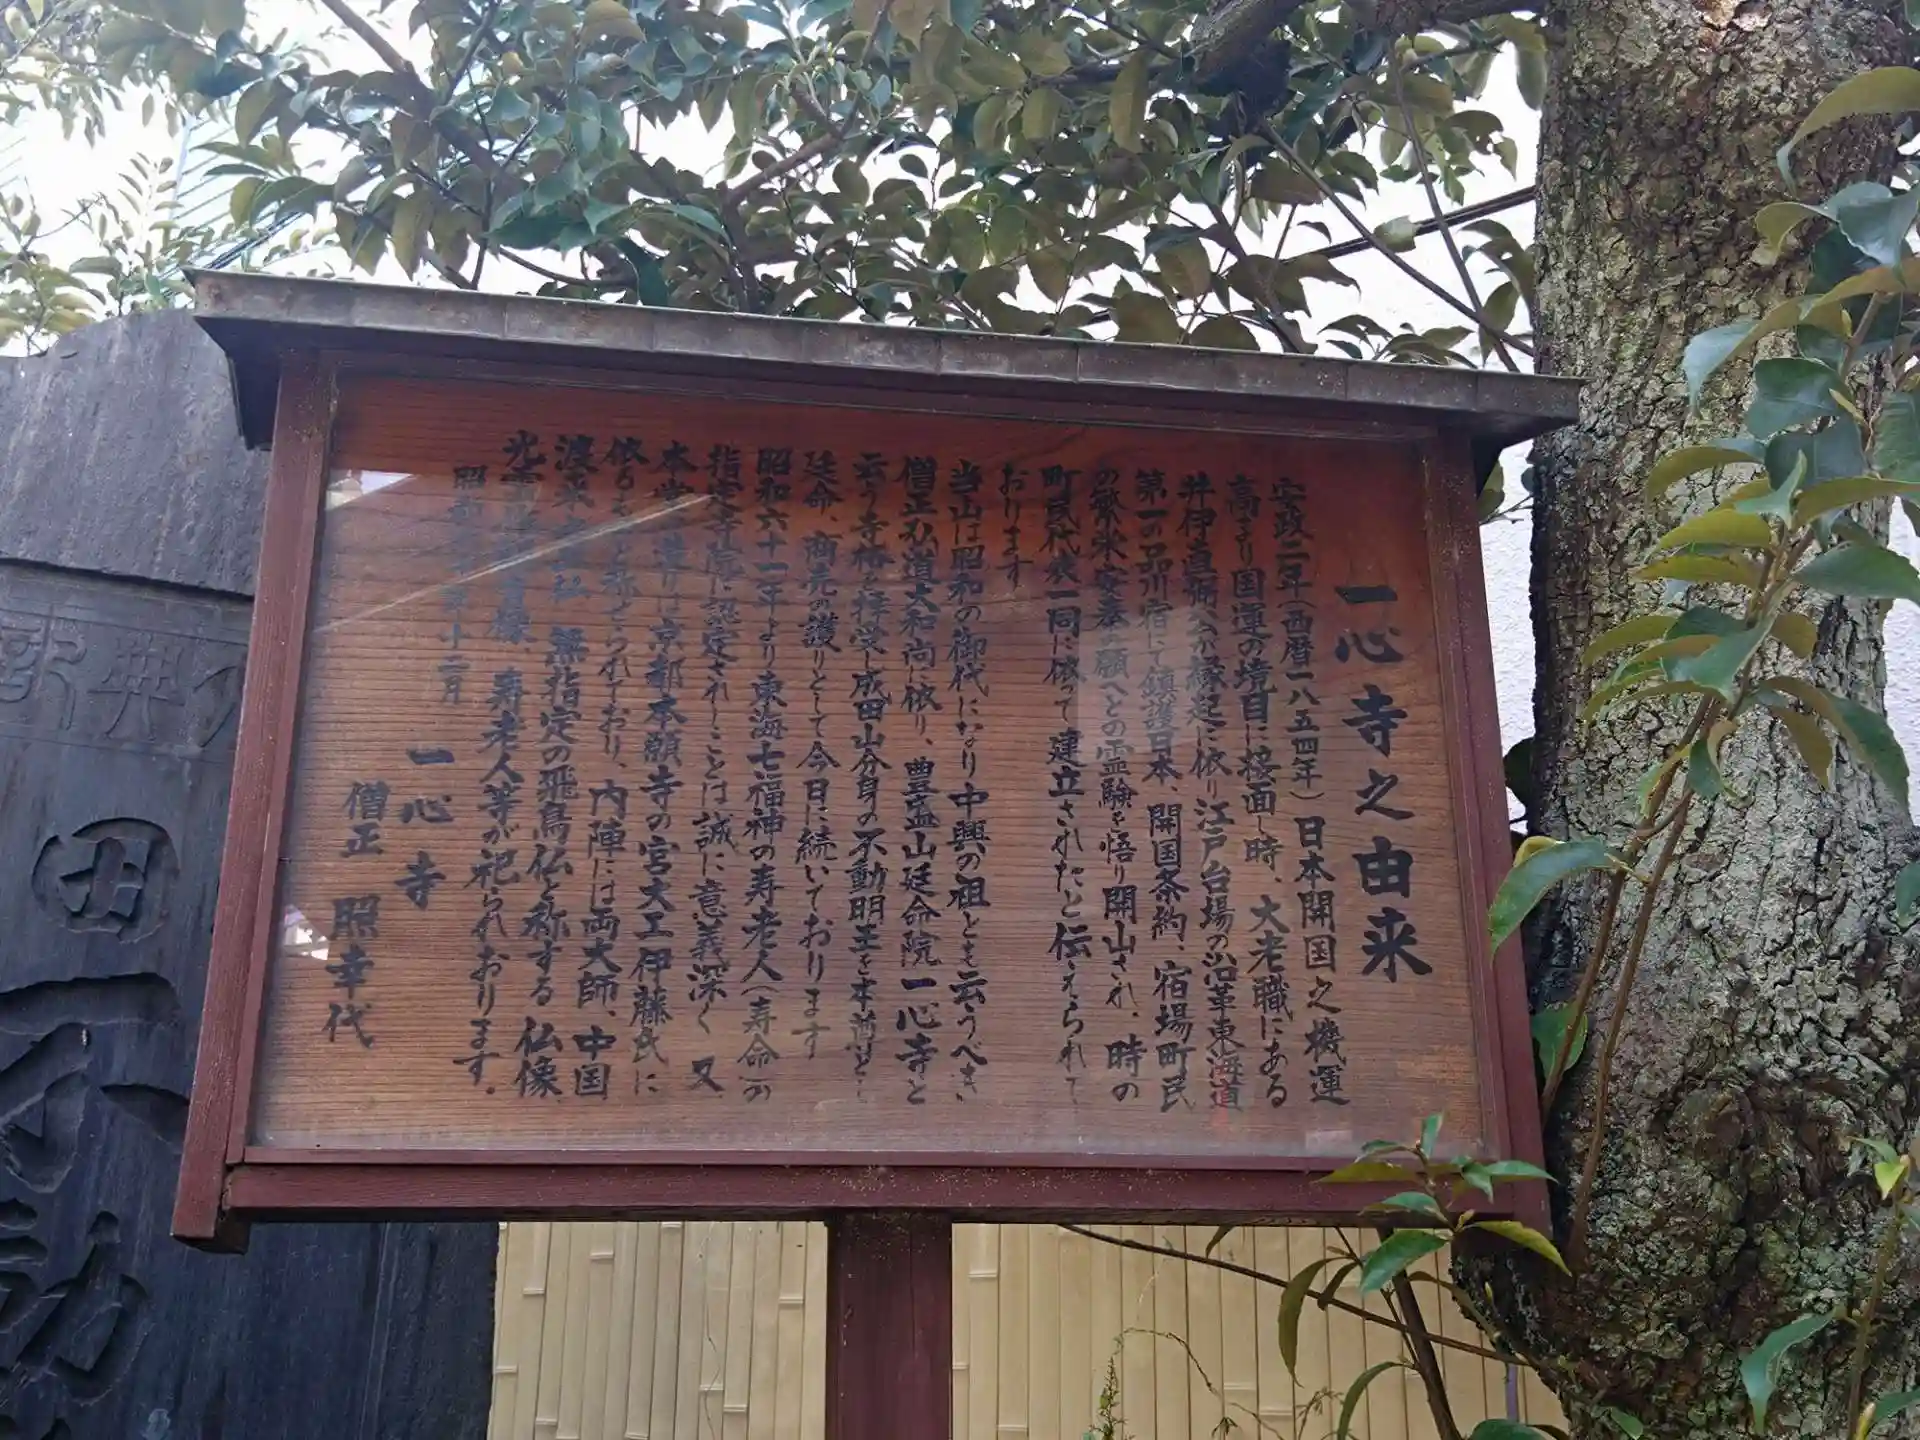 一心寺之由来
安政二年(西暦一八五四年)日本開国之機運
高まり国運の境目に接面し時、大老職にある
井伊直弼公が縁起に依り江戸台場の沿革東海道
第一の品川宿にて鎮護日本、開国条約、宿場町民
の繁栄安泰の願へとの霊験を悟り開山され、時の
町民代表一同に依って建立されたと伝えられて
おります
当山は昭和の御代になり中興の祖とも云うべき
僧正弘道大和尚に依り、豊盛山延命院一心寺と
云う寺格を拝受し成田山分身の不動明王を本尊とし
延命、商売の護りとして今日に続いております
昭和六十一年より東海七福神の寿老人(寿命)の
指定寺院に認定されしことは誠に意義深く又
本堂の造りは京都本願寺の宮大工伊藤氏に
依るものと称どられており、内陣には両大師、中国
渡来 無指定の飛鳥仏と称する仏像、
像、寿老人等が祀られおります。
昭和 年十二月
一心寺
僧正 照幸代
田
不
動